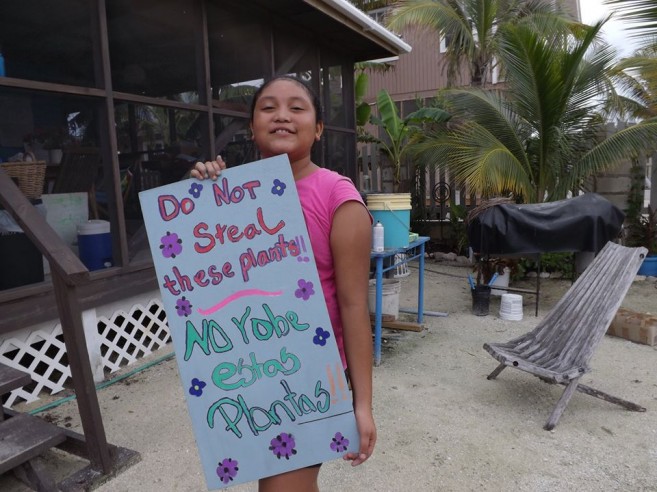 Do Not
Steal
these plants!!
No robe
estas
Plantas!!